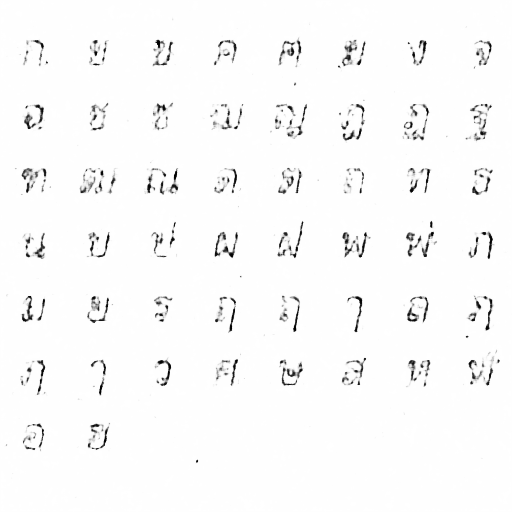 ก ข ฃ ค ฅ ฆ ง จ
ฉ ช ซ ฌ ญ ฎ ฏ ฐ
ฑ ฒ ณ ด ต ถ ท ธ
น บ ป ผ ฝ พ ฟ ภ
ม ย ร ฤ ฤ า ล ฦ
ฦ ว ศ ษ ส ห ฬ
อ ฮ